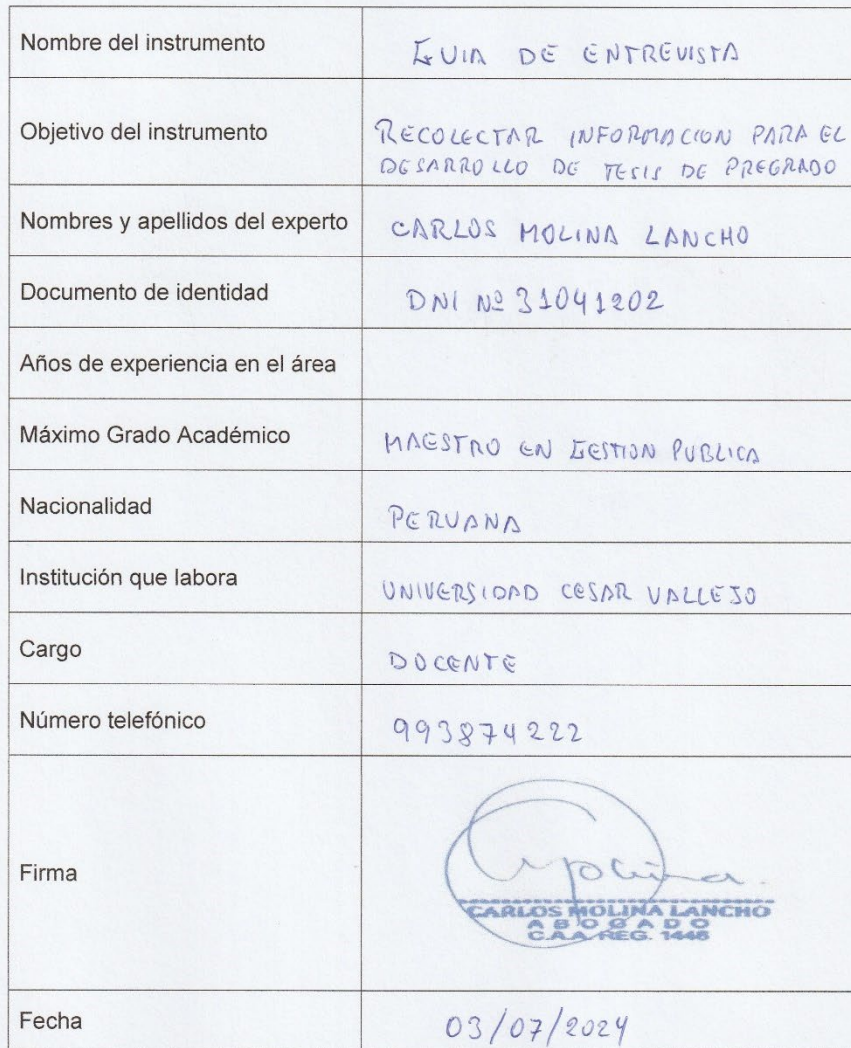 Nombre del instrumento
GUIA DE ENTREVISTA
Objetivo del instrumento
RECOLECTAR INFORMACION PARA EL
DESARROLLO DE TESIS DE PREGRADO
Nombres y apellidos del experto
CARLOS MOLINA LANCHO
Documento de identidad
DNI Nº 31041202
Años de experiencia en el área
Máximo Grado Académico
MAESTRO EN GESTION PUBLICA
Nacionalidad
PERUANA
Institución que labora
UNIVERSIDAD CESAR VALLEJO
Cargo
DOCENTE
Número telefónico
993874222
Firma
CARLOS MOLINA LANCHO
ABOGADO
C.A.A. REG. 1446
Fecha
03/07/2024